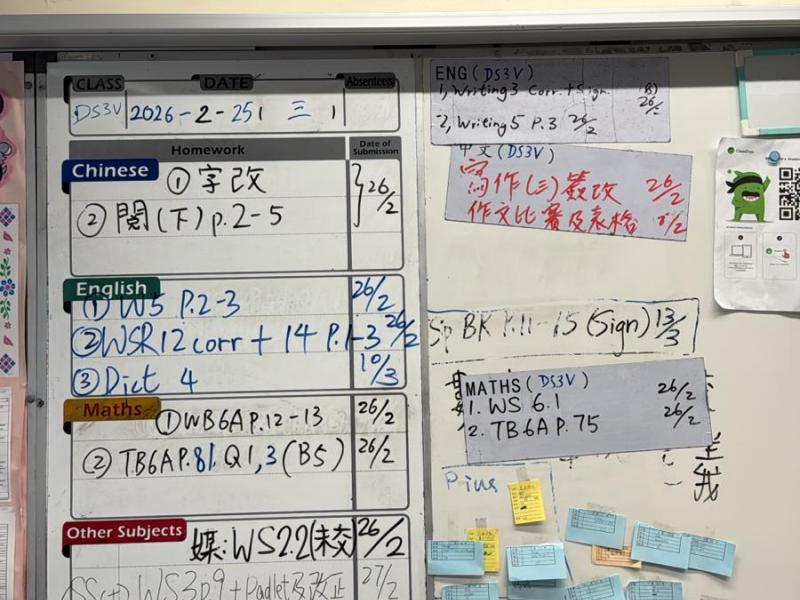 CLASS DATE Absentees
DS3V 2026-2-25 三
Homework Date of Submission
Chinese
① 字改 26/2
② 閱(下) p.2-5
English
① W5 P.2-3 26/2
② WSR12 corr + 14 P.1-3 26/2
③ Dict 4 10/3
Maths
① WB6A P.12-13 26/2
② TB6A P.81, Q1,3 (B5) 26/2
Other Subjects
媒: WS2.2(未交) 26/2
WS3 p.9 + Padlet及改正 27/2
ENG (DS3V)
1, Writing3 Corr. + Sign. 26/2
2, Writing5 P.3 26/2
中文(DS3V)
寫作(三)簽改 26/2
作文比賽及表格
BK P.11-15 (Sign) 13/3
MATHS (DS3V)
1. WS 6.1 26/2
2. TB 6A P.75 26/2
Pius